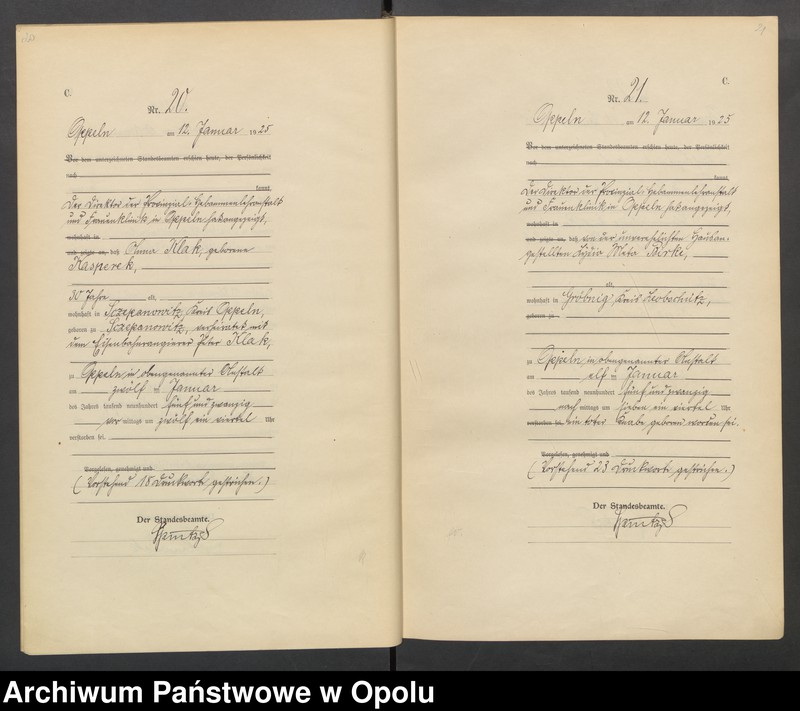 C.
Nr. 20.
Oppeln am 12. Januar 1925
Vor dem unterzeichneten Standesbeamten erschien heute, der Persönlichkeit
nach
kannt,
Der Direktor der Provinzial-Hebammenlehranstalt
und Frauenklinik in Oppeln hat angezeigt,
wohnhaft in
und zeigte an, daß Anna Klak, geborene
Kasperek,
30 Jahre alt,
wohnhaft in Sczepanowitz, Kreis Oppeln,
geboren zu Sczepanowitz, verheiratet mit
dem Eisenbahnrangierer Peter Klak,
zu Oppeln in obengenannter Anstalt
am zwölf ten Januar
des Jahres tausend neunhundert fünf und zwanzig
vor mittags um zwölf ein viertel Uhr
verstorben sei.
Vorgelesen, genehmigt und
(Vorstehend 18 Druckworte gestrichen.)
Der Standesbeamte.
C.
Nr. 21.
Oppeln am 12. Januar 1925
Vor dem unterzeichneten Standesbeamten erschien heute, der Persönlichkeit
nach
kannt,
Der Direktor der Provinzial-Hebammenlehranstalt
und Frauenklinik in Oppeln hat angezeigt,
wohnhaft in
und zeigte an, daß von der unverehelichten Hausan-
gestellten Meta
alt,
wohnhaft in Gröbnig, Kreis Leobschütz,
geboren zu
zu Oppeln in obengenannter Anstalt
am elf ten Januar
des Jahres tausend neunhundert fünf und zwanzig
nach mittags um sieben ein viertel Uhr
verstorben sei, ein toter Knabe geboren worden sei.
Vorgelesen, genehmigt und
(Vorstehend 23 Druckworte gestrichen.)
Der Standesbeamte.
Archiwum Państwowe w Opolu